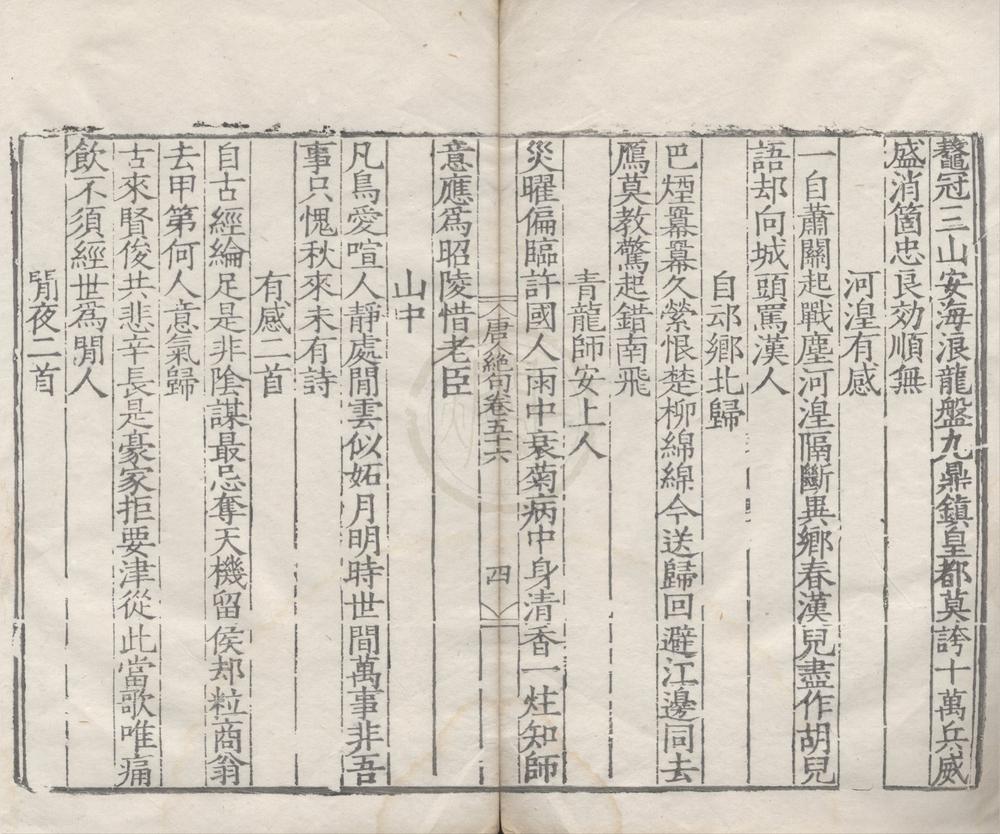 鼇冠三山安海浪龍盤九鼎鎮皇都莫誇十萬兵威
盛消箇忠良効順無
河湟有感
一自蕭關起戰塵河湟隔斷異鄉春漢兒盡作胡兒
語却向城頭罵漢人
自邙鄉北歸
巴煙羃羃久縈恨楚柳綿綿今送歸回避江邊同去
鴈莫教驚起錯南飛
青龍師安上人
災曜偏臨許國人雨中衰菊病中身清香一炷知師
意應爲昭陵惜老臣
唐絕句卷五十六
四
山中
凡鳥愛喧人靜處閒雲似妬月明時世間萬事非吾
事只愧秋來未有詩
有感二首
自古經綸足是非陰謀最忌奪天機留侯却粒商翁
去甲第何人意氣歸
古來賢俊共悲辛長是豪家拒要津從此當歌唯痛
飲不須經世爲閒人
閒夜二首